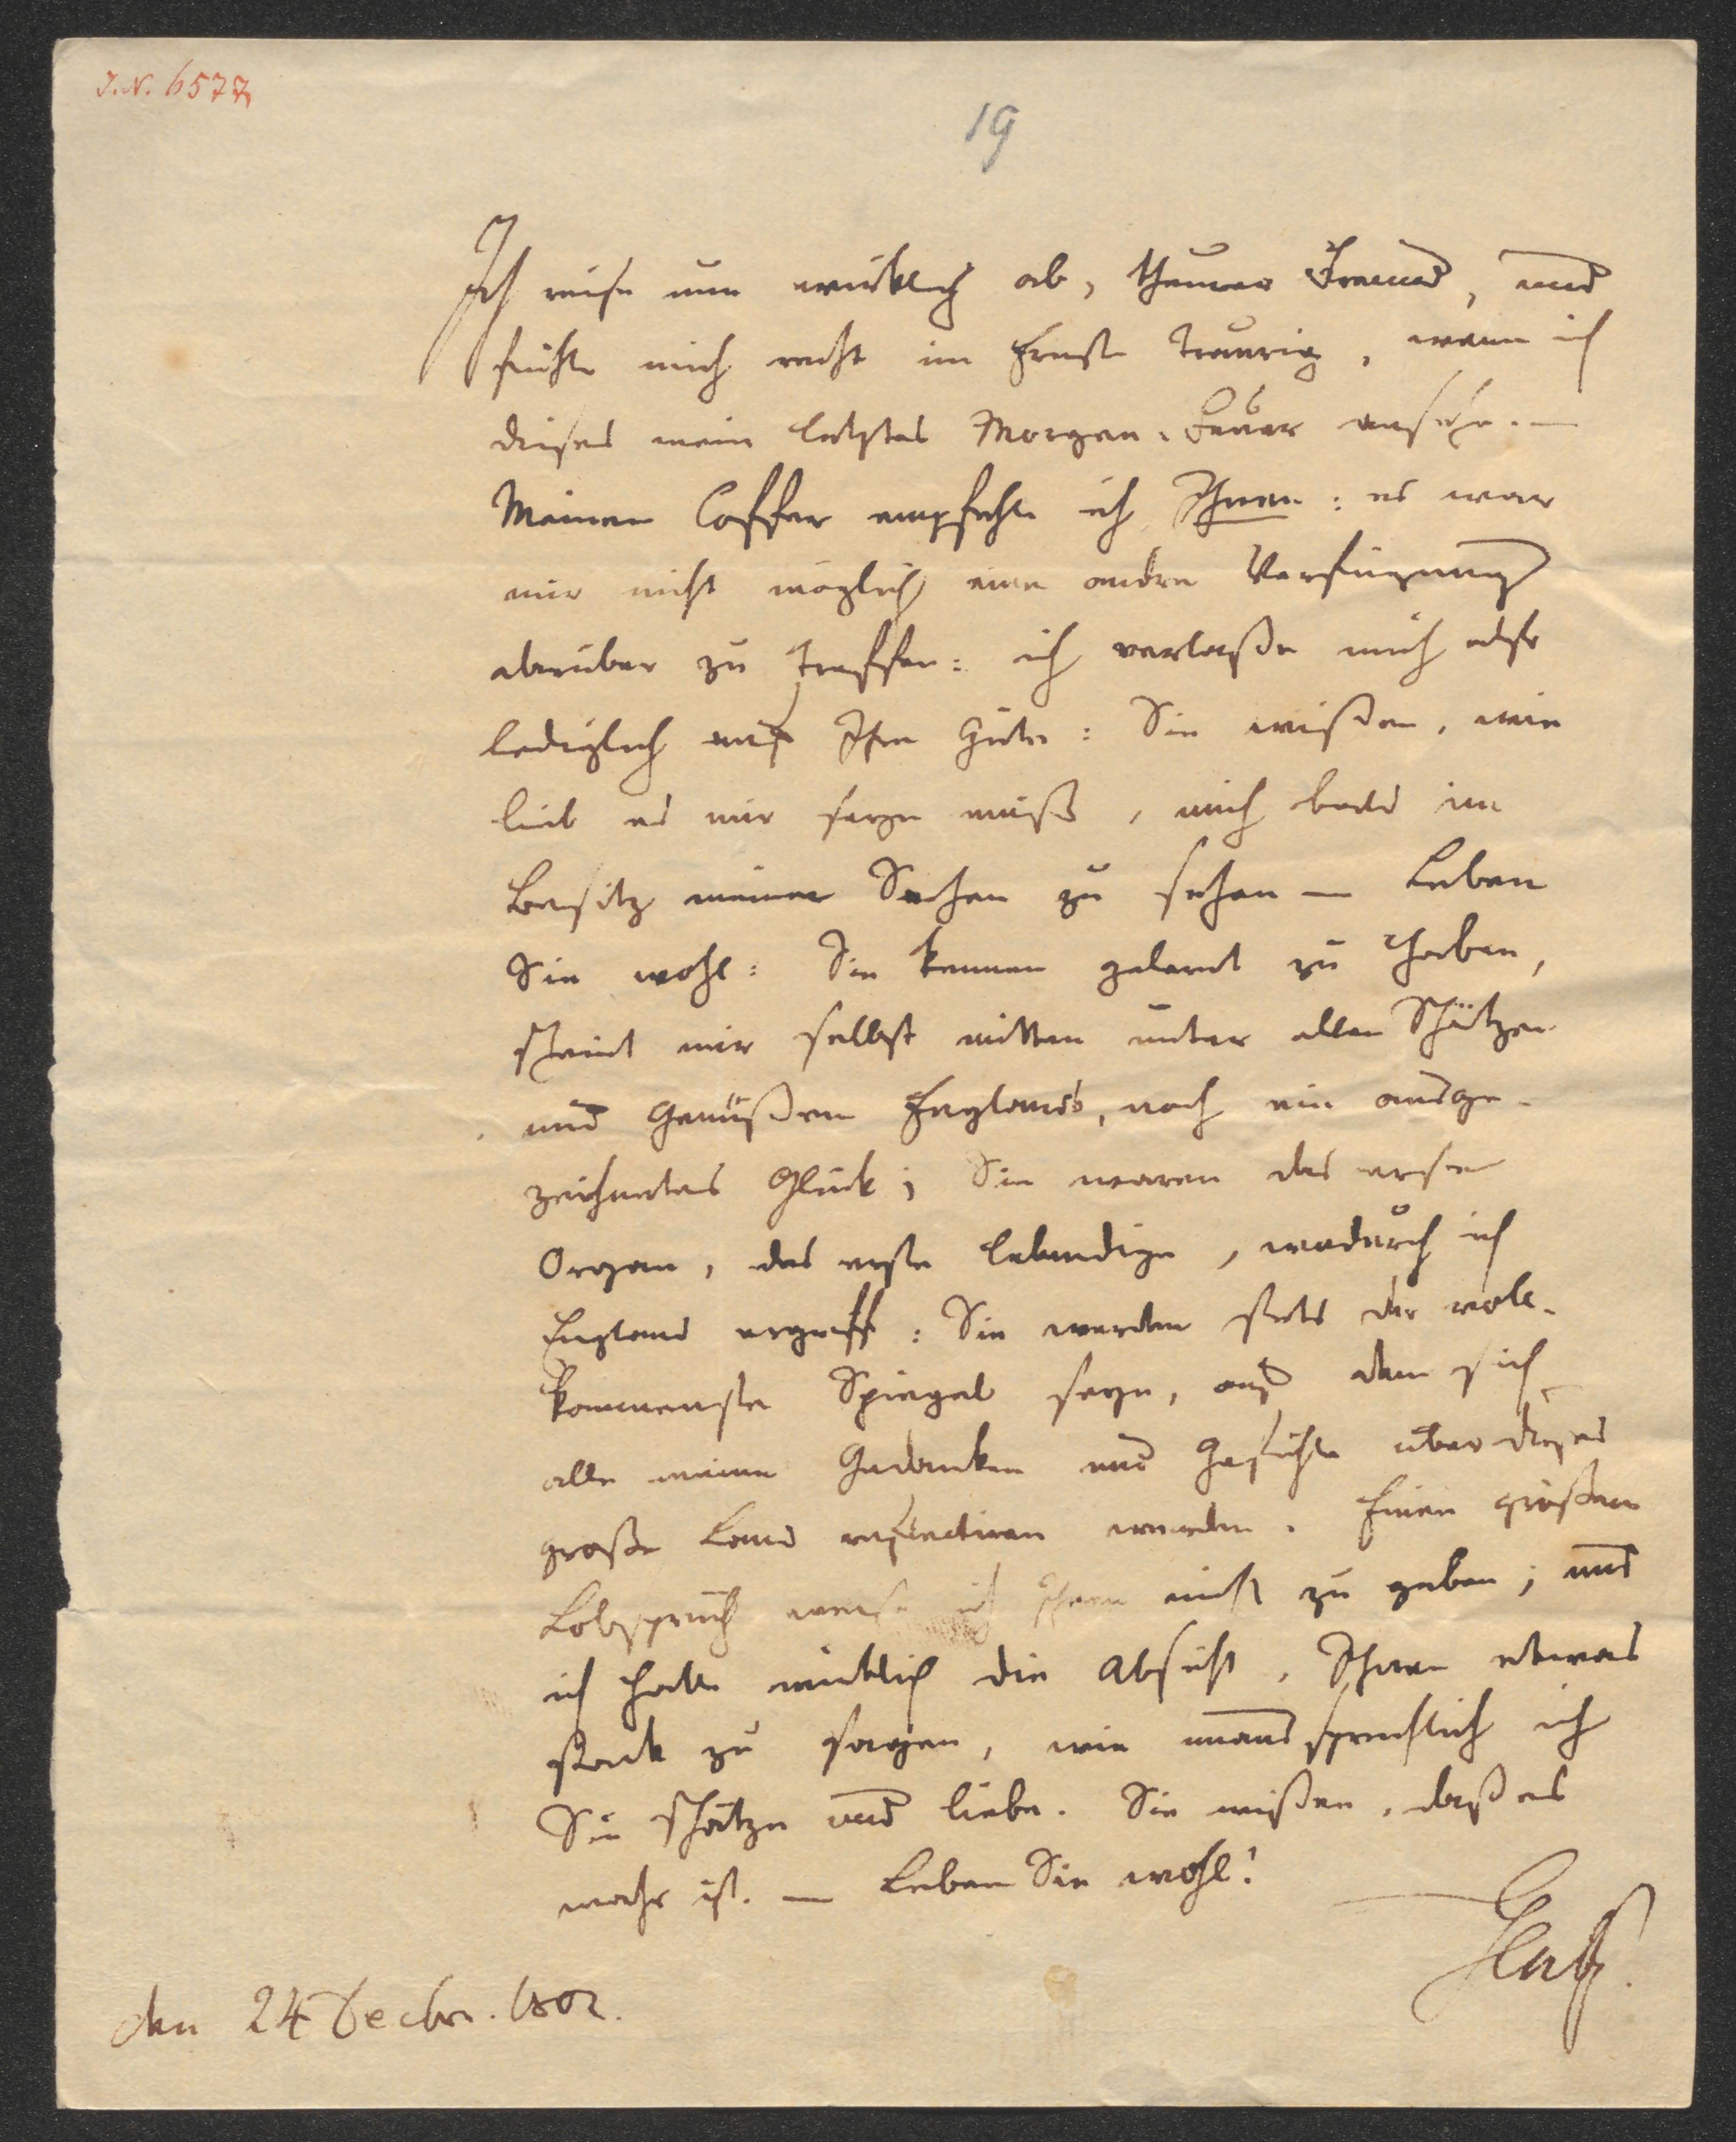 J.N. 6577
19
Ich reise nun wirklich ab, theurer Freund, und
fühle mich recht im Ernste traurig, wenn ich
dieses mein letztes Morgen-Feuer ansehe. —
Meinen Coffer empfehle ich Ihnen: es war
mir nicht möglich eine andre Verfügung
darüber zu treffen: ich verlaße mich also
lediglich auf Ihre Güte: Sie wißen, wie
lieb es mir seyn muß, mich bald im
Besitz meiner Sachen zu sehen — Leben
Sie wohl: Sie kennen gelernt zu haben,
scheint mir selbst mitten unter allen Schätzen
und Genüßen Englands, noch ein ausge-
zeichnetes Glück; Sie waren das erste
Organ, das erste lebendige, wodurch ich
England ergriff: Sie werden stets der voll-
kommenste Spiegel seyn, aus dem sich
alle meine Gedanken und Gefühle über dieses
große Land reflectiren werden. Einen größern
Lobspruch weiß ich Ihnen nicht zu geben; und
ich hatte wirklich die Absicht, Ihnen etwas
stark zu sagen, wie unaussprechlich ich
Sie schätze und liebe. Sie wißen, daß es
wahr ist. — Leben Sie wohl!
Gentz.
den 24 Decbr. 1802.